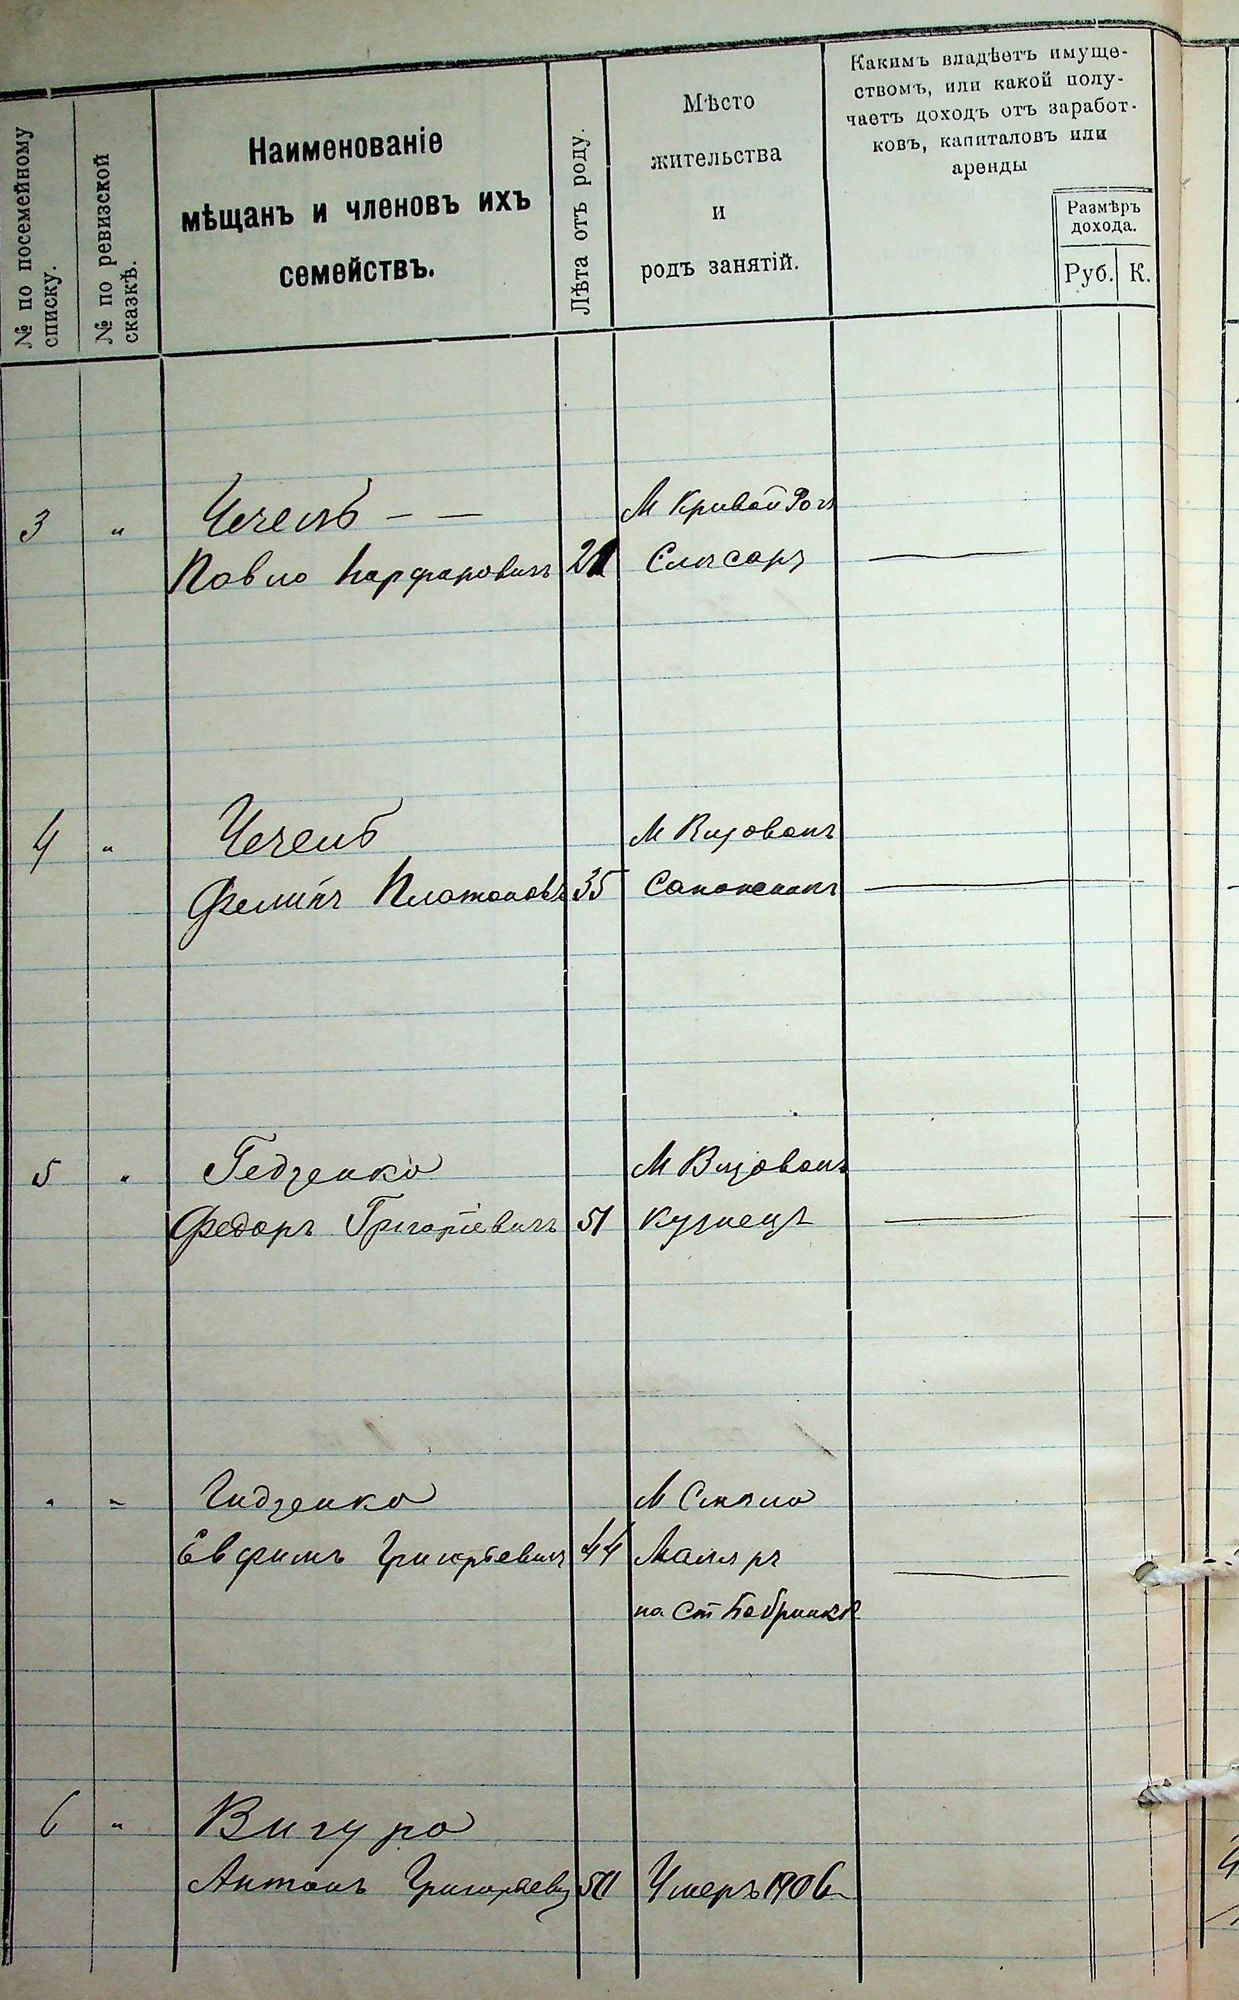 № по посемейному
списку.
№ по ревизской
сказкѣ.
Наименованіе
мѣщанъ и членовъ ихъ
семействъ.
Лѣта отъ роду.
Мѣсто
жительства
и
родъ занятій.
Какимъ владѣетъ имуще-
ствомъ, или какой полу-
чаетъ доходъ отъ заработ-
ковъ, капиталовъ или
аренды
Размѣръ
дохода.
Руб. К.
3 „ Чечель – – М Кривой Рогъ
Павло 21 Слѣсарь
4 „ Чечель М
Платоновъ 35 Сапожникъ
5 „ Гедзенко М
Федоръ Григоріевичъ 51 Кузнецъ
„ „ Гидзенко М Смѣла
Евфимъ Григорьевичъ 44 Маляръ
на Ст Бобринка
6 „ Вигура
Антонъ Григорьев Умеръ 1906